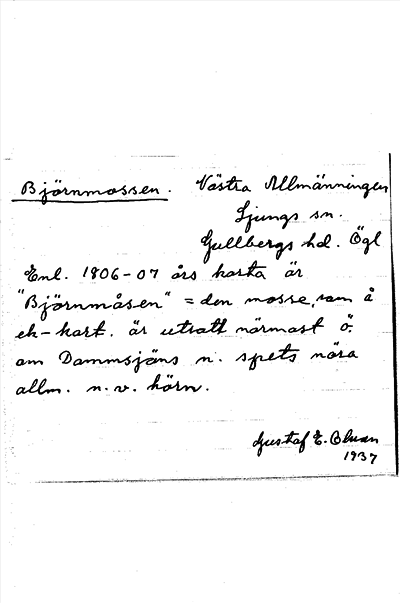 Björnmossen. Västra Allmänningen
Ljungs sn.
Gullbergs hd. Ögl
Enl. 1806-07 års karta är
"Björnmåsen" = den mosse, som å
ek-kart. är utsatt närmast ö.
om Dammsjäns n. spets nära
allm. n.v. hörn.
Gustaf E. Olsson
1937